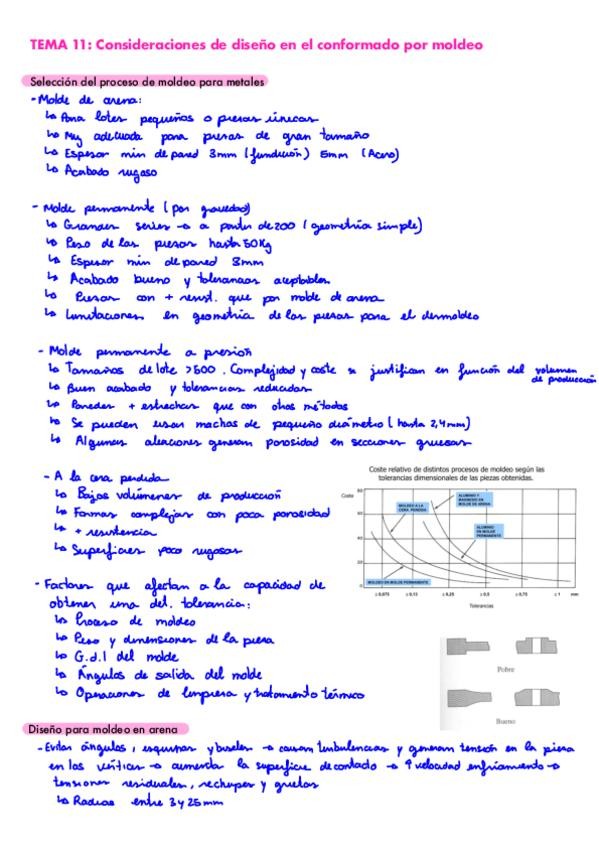 TEMA 11: Consideraciones de diseño en el conformado por moldeo
Selección del proceso de moldeo para metales
- Molde de arena:
↳ Para lotes pequeños o piezas únicas
↳ Muy adecuada para piezas de gran tamaño
↳ Espesor min de pared 3mm (fundición) 5mm (Acero)
↳ Acabado rugoso
- Molde permanente (por gravedad)
↳ Grandes series → a partir de 200 (geometría simple)
↳ Peso de las piezas hasta 50Kg
↳ Espesor min de pared 3mm
↳ Acabado bueno y tolerancias aceptables
↳ Piezas con + resist. que por molde de arena
↳ Limitaciones en geometría de las piezas para el desmoldeo
- Molde permanente a presión
↳ Tamaños de lote >500. Complejidad y coste se justifican en función del volumen
de producción
↳ Buen acabado y tolerancias reducidas
↳ Paredes + estrechas que con otros métodos
↳ Se pueden usar machos de pequeño diámetro (hasta 2,4mm)
↳ Algunas aleaciones generan porosidad en secciones gruesas
- A la cera perdida
↳ Bajos volúmenes de producción
↳ Formas complejas con poca porosidad
↳ + resistencia
↳ Superficies poco rugosas
Coste relativo de distintos procesos de moldeo según las
tolerancias dimensionales de las piezas obtenidas.
Coste
80
60
40
20
0
MOLDEO A LA
CERA PERDIDA
ALUMINIO Y
MAGNESIO EN
MOLDE DE ARENA
ALUMINIO
EN MOLDE
PERMANENTE
MOLDEO EN MOLDE PERMANENTE
± 0,075 ± 0,13 ± 0,25 ± 0,5 ± 0,75 ± 1 mm
Tolerancias
- Factores que afectan a la capacidad de
obtener una det. tolerancia:
↳ Proceso de moldeo
↳ Peso y dimensiones de la pieza
↳ G.d.l del molde
↳ Ángulos de salida del molde
↳ Operaciones de limpieza y tratamiento térmico
Pobre
Bueno
Diseño para moldeo en arena
- Evitar ángulos, esquinas y biseles → causan turbulencias y generan tensión en la pieza
en los vértices → aumenta la superficie de contacto → ↑ velocidad enfriamiento →
tensiones residuales, rechupes y grietas
↳ Radios entre 3 y 25mm